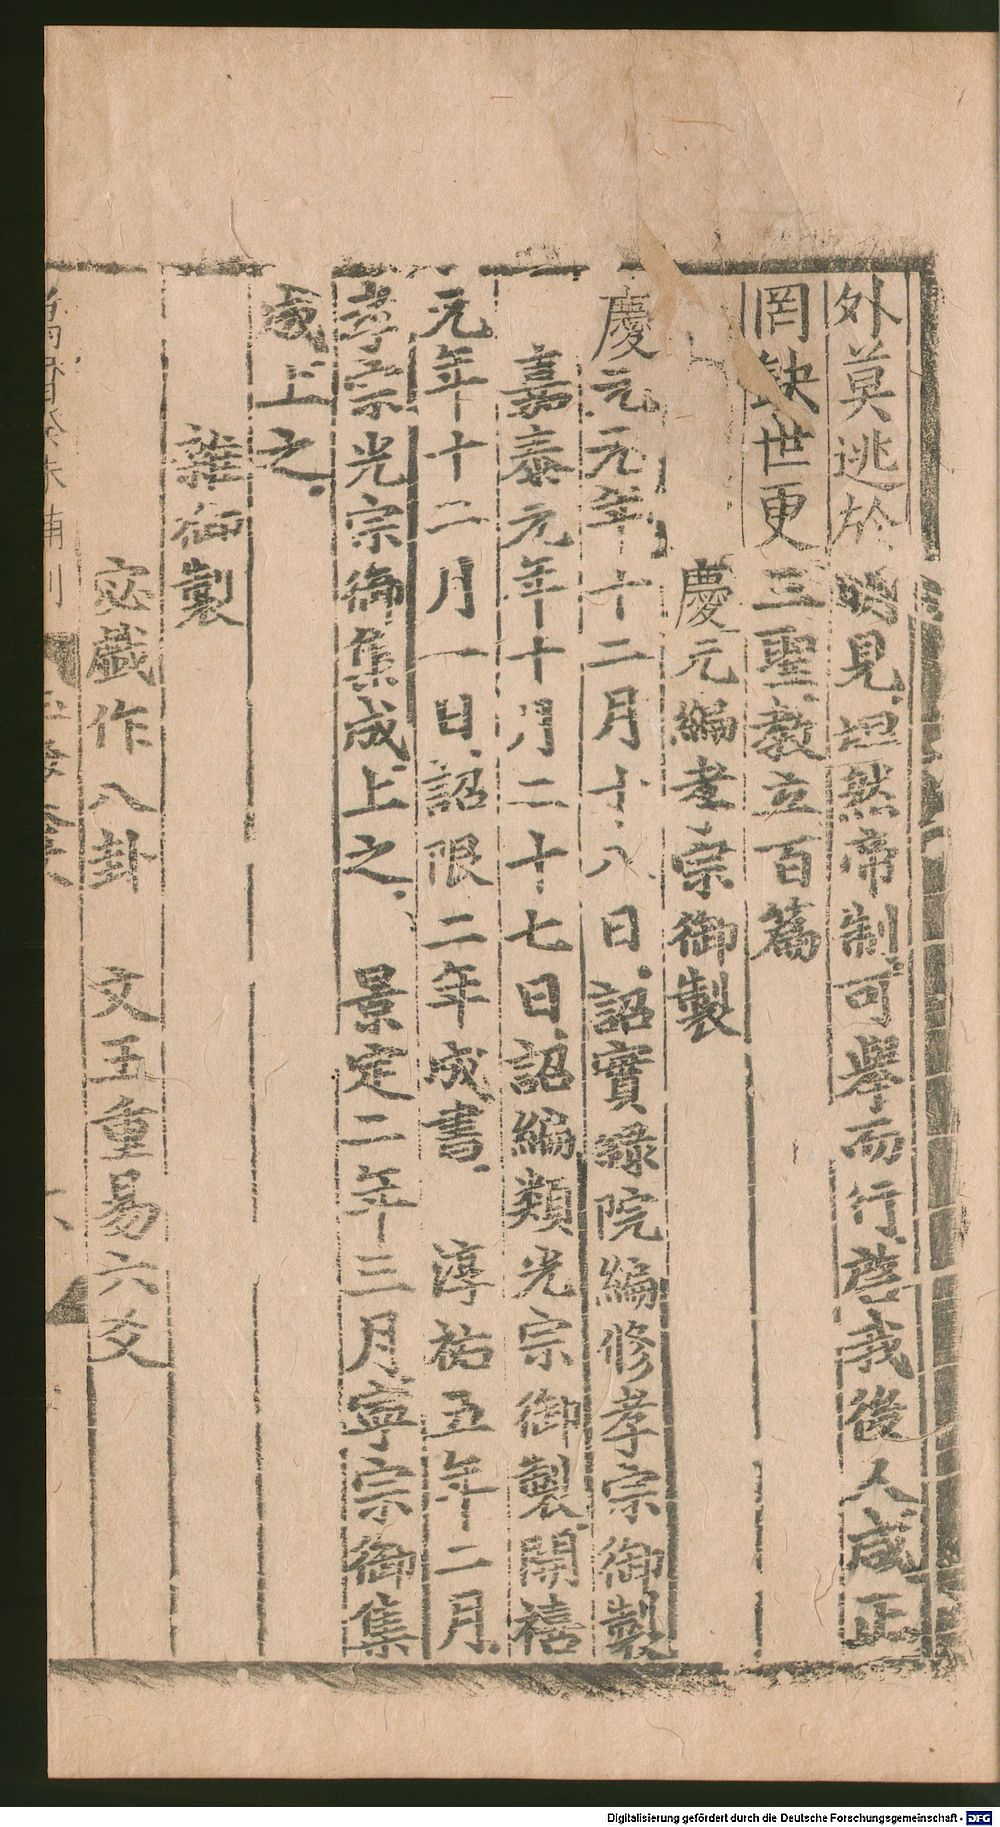 外莫逃於明見坦然帝制可舉而行啓我後人咸正
罔缺世更三聖教立百篇
慶元編孝宗御製
慶元元年十二月十八日詔實錄院編修孝宗御製
嘉泰元年十月二十七日詔編類光宗御製開禧
元年十二月一日詔限二年成書 淳祐五年二月
孝宗光宗御集成上之 景定二年三月寧宗御集
成上之
雜御製
宓戲作八卦 文五重易六爻
Digitalisierung gefördert durch die Deutsche Forschungsgemeinschaft - DFG